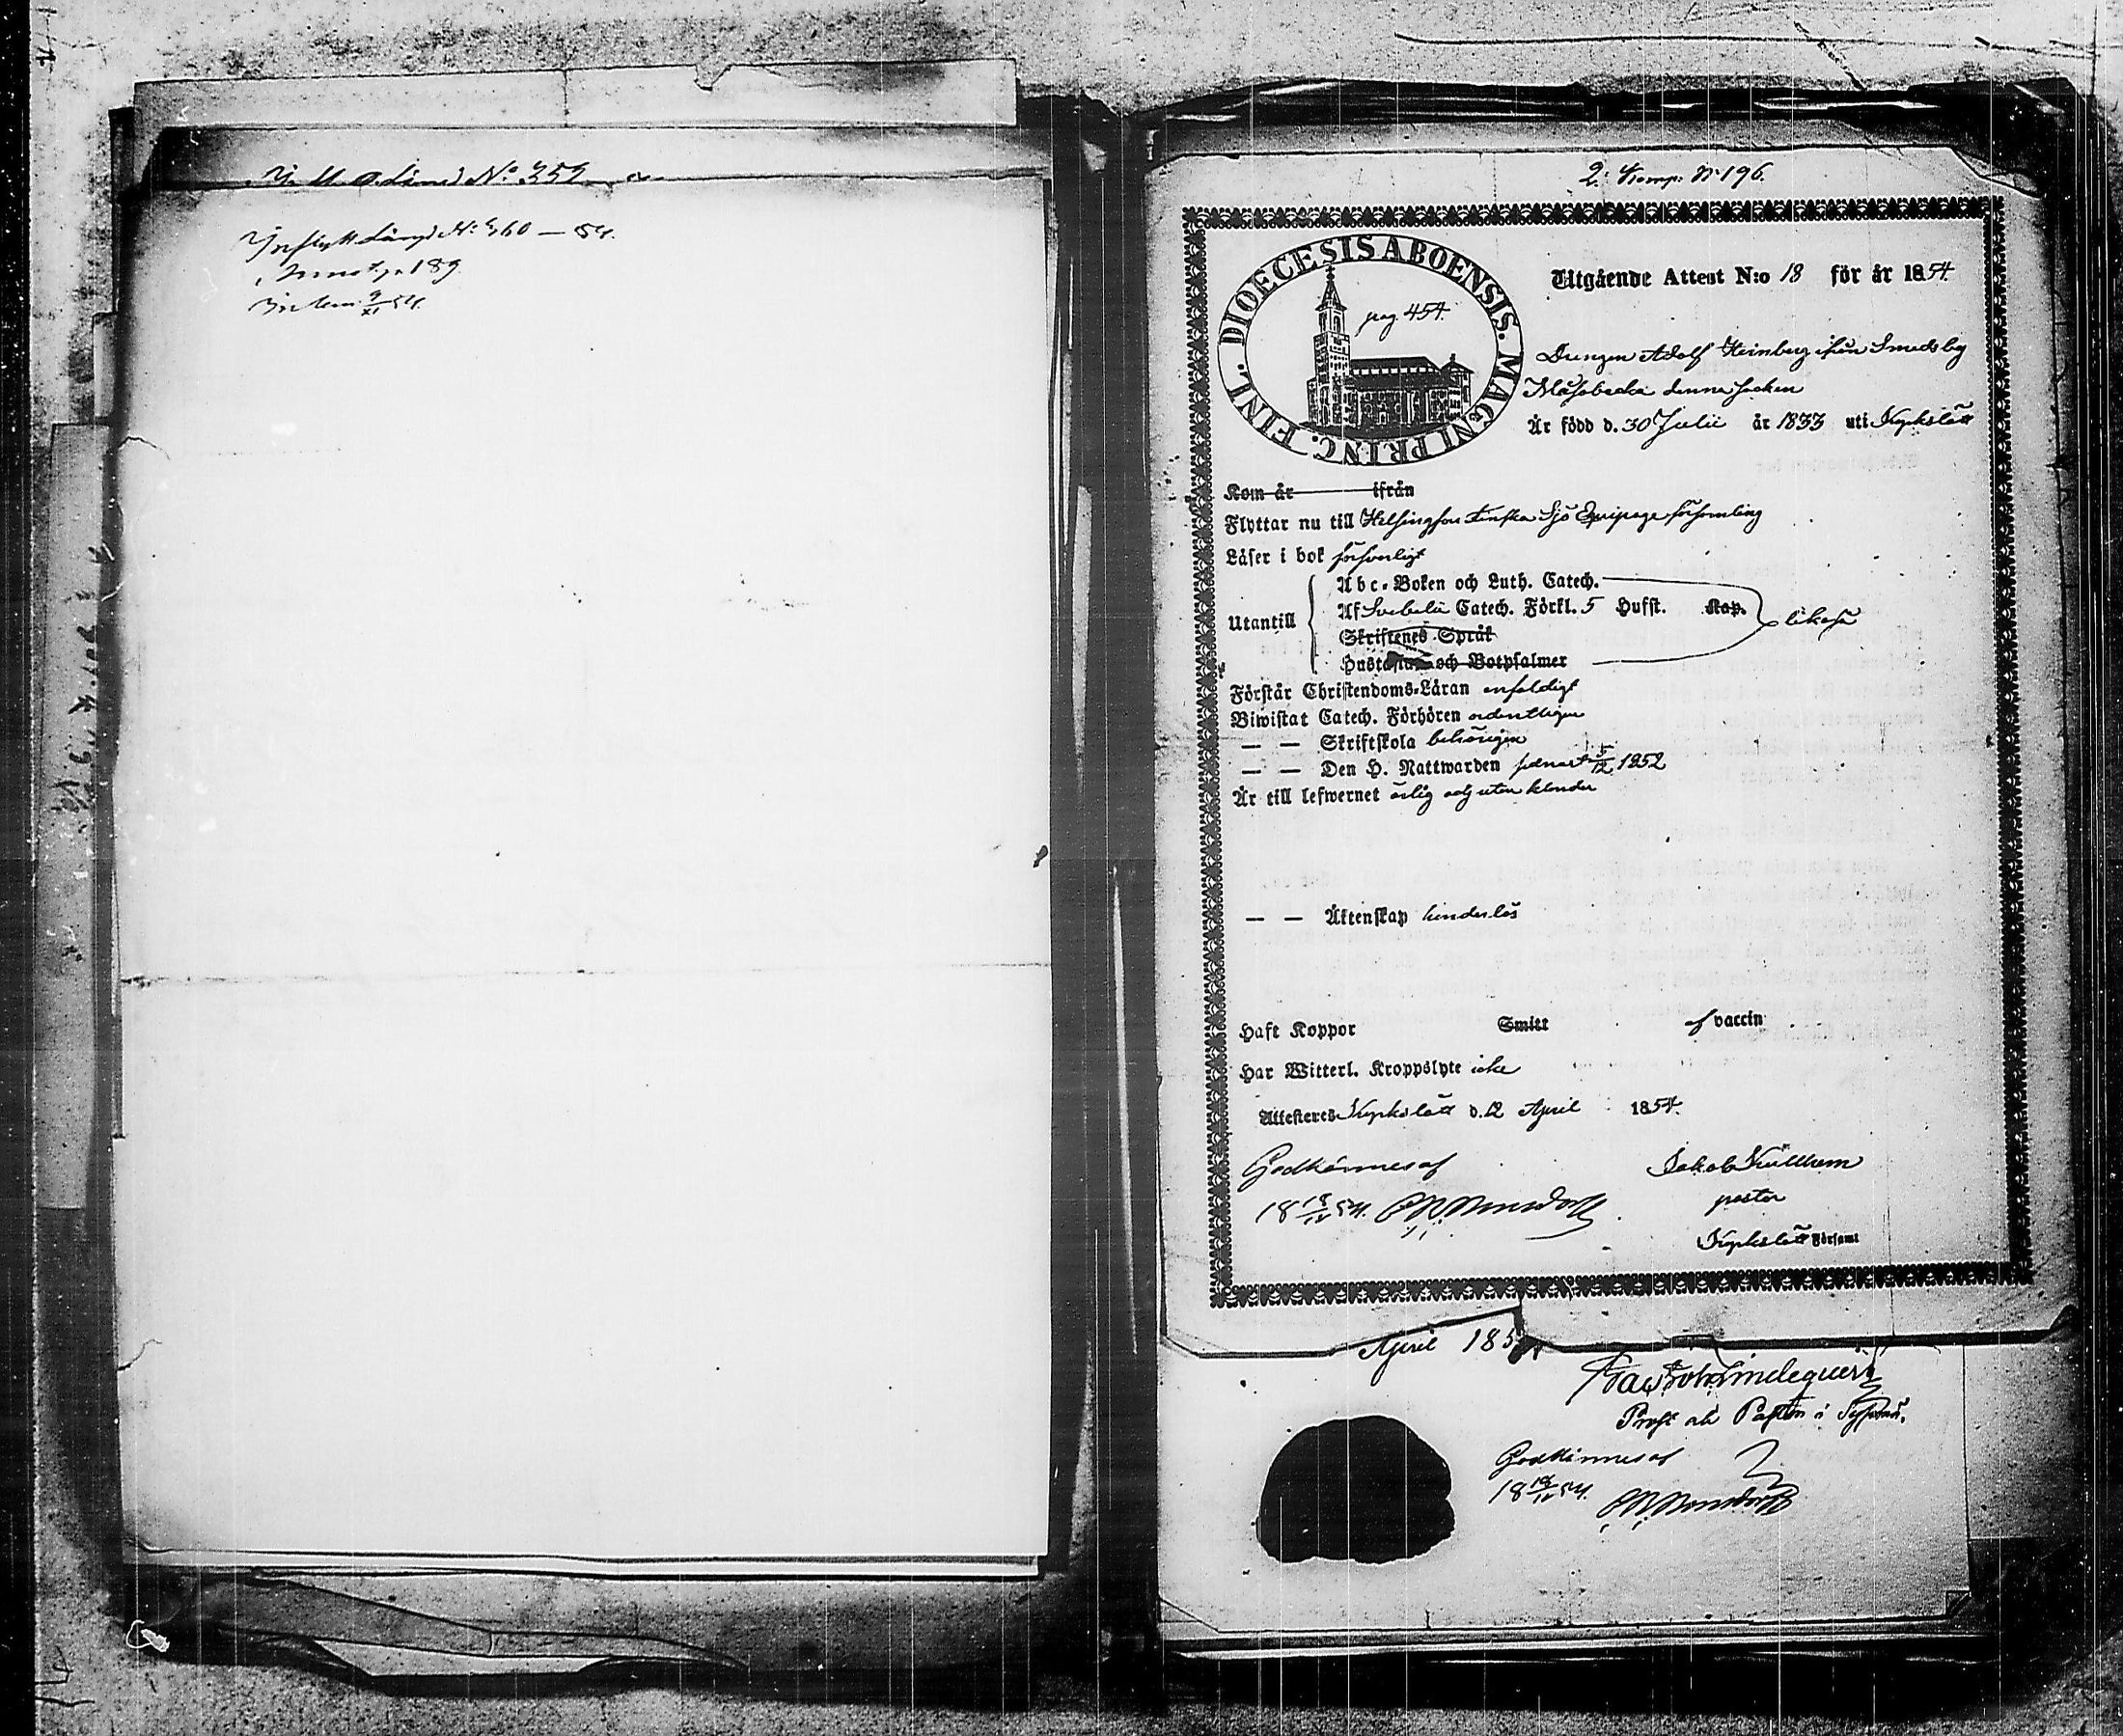 Inflytt Längd No 359
Inflytt Längd No 360 — 54.
189
54.
2. Komp. N 196.
DIOECESIS ABOENSIS. MAGNI PRINC. FINL.
pag. 454.
Utgående Attest N:o 18 för år 1854
Drengen Adolf Heinberg ifrån Smedsby
Måsabacka denna socken
Är född d. 30 Julii år 1833 uti Kyrkslätt
Kom år ifrån
Flyttar nu till Helsingfors Finska Sjö Equipage församling
Läser i bok försvarligt
Utantill
Abc-Boken och Luth. Catech.
Af Svebelii Catech. Förkl. 5 Hufst. Kap.
Skriftenes Språk
Hustaflan och Botpsalmer
likaså
Förstår Christendoms-Läran enfaldigt
Biwistat Catech. Förhören ordentligen
— — Skriftskola behörigen
— — Den H. Nattwarden senast 5/12 1852
Är till lefwernet ärlig och utan klander
— — Äktenskap hinderlös
Haft Koppor Smitt af vaccin
Har Witterl. Kroppslyte icke
Attesteres Kyrkslätt d. 12 April 1854.
Godkännes af
18 18/IV 54.
Jakob
pastor
Kyrkslätt Församl
April 185
Prost och Pastor i
Godkännes af
18 18/IV 54.